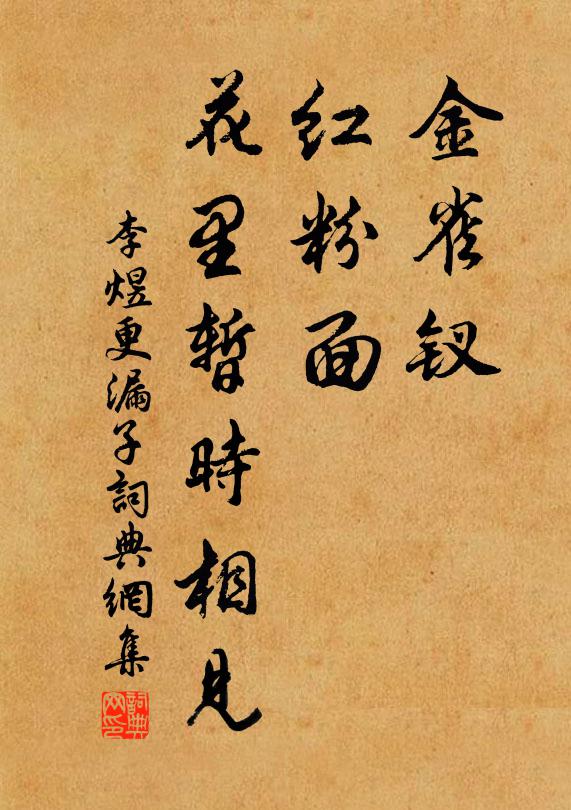 金雀钗
红粉面
花里暂時相見
李煜更漏子詞典網集
詞典網印